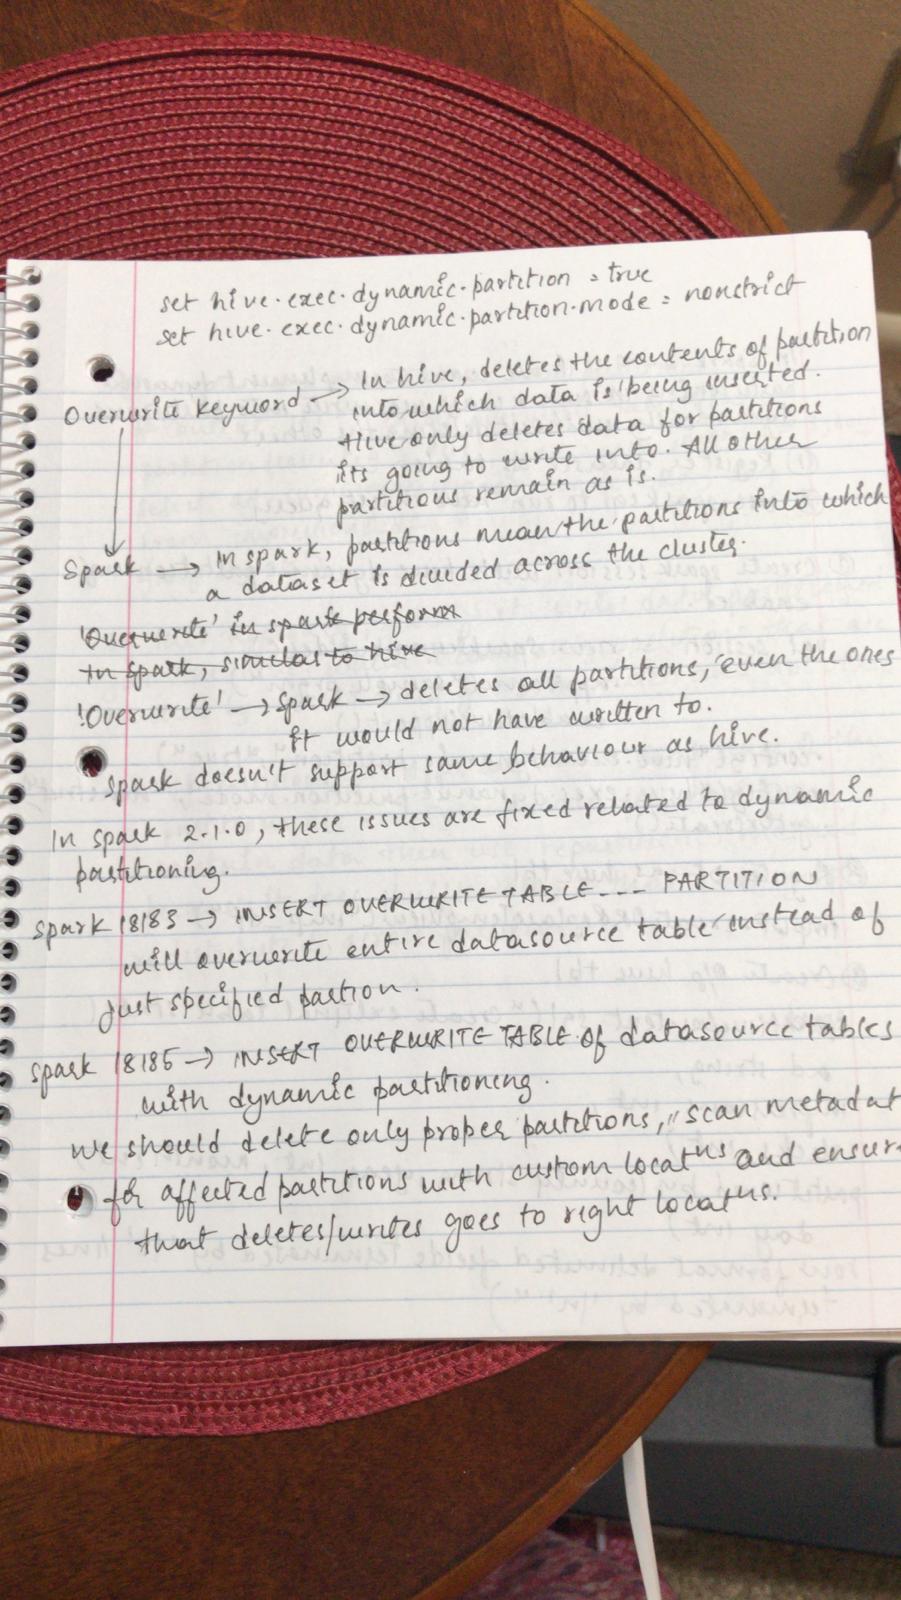 set hive.exec.dynamic.partition = true
set hive.exec.dynamic.partition.mode = nonstrict
Overwrite keyword → In hive, deletes the contents of partition
into which data is being inserted.
Hive only deletes data for partitions
its going to write into. All other
partitions remain as is.
Spark → In spark, partitions mean the partitions into which
a dataset is divided across the cluster.
'Overwrite' in spark perform
In spark, similar to hive
'Overwrite' → Spark → deletes all partitions, even the ones
it would not have written to.
Spark doesn't support same behaviour as hive.
In spark 2.1.0, these issues are fixed related to dynamic
partitioning.
spark 18183 → INSERT OVERWRITE TABLE --- PARTITION
will overwrite entire datasource table instead of
just specified partion.
spark 18185 → INSERT OVERWRITE TABLE of datasource tables
with dynamic partitioning.
we should delete only proper partitions, scan metadat
for affected partitions with custom locatns and ensur
that deletes/writes goes to right locatns.